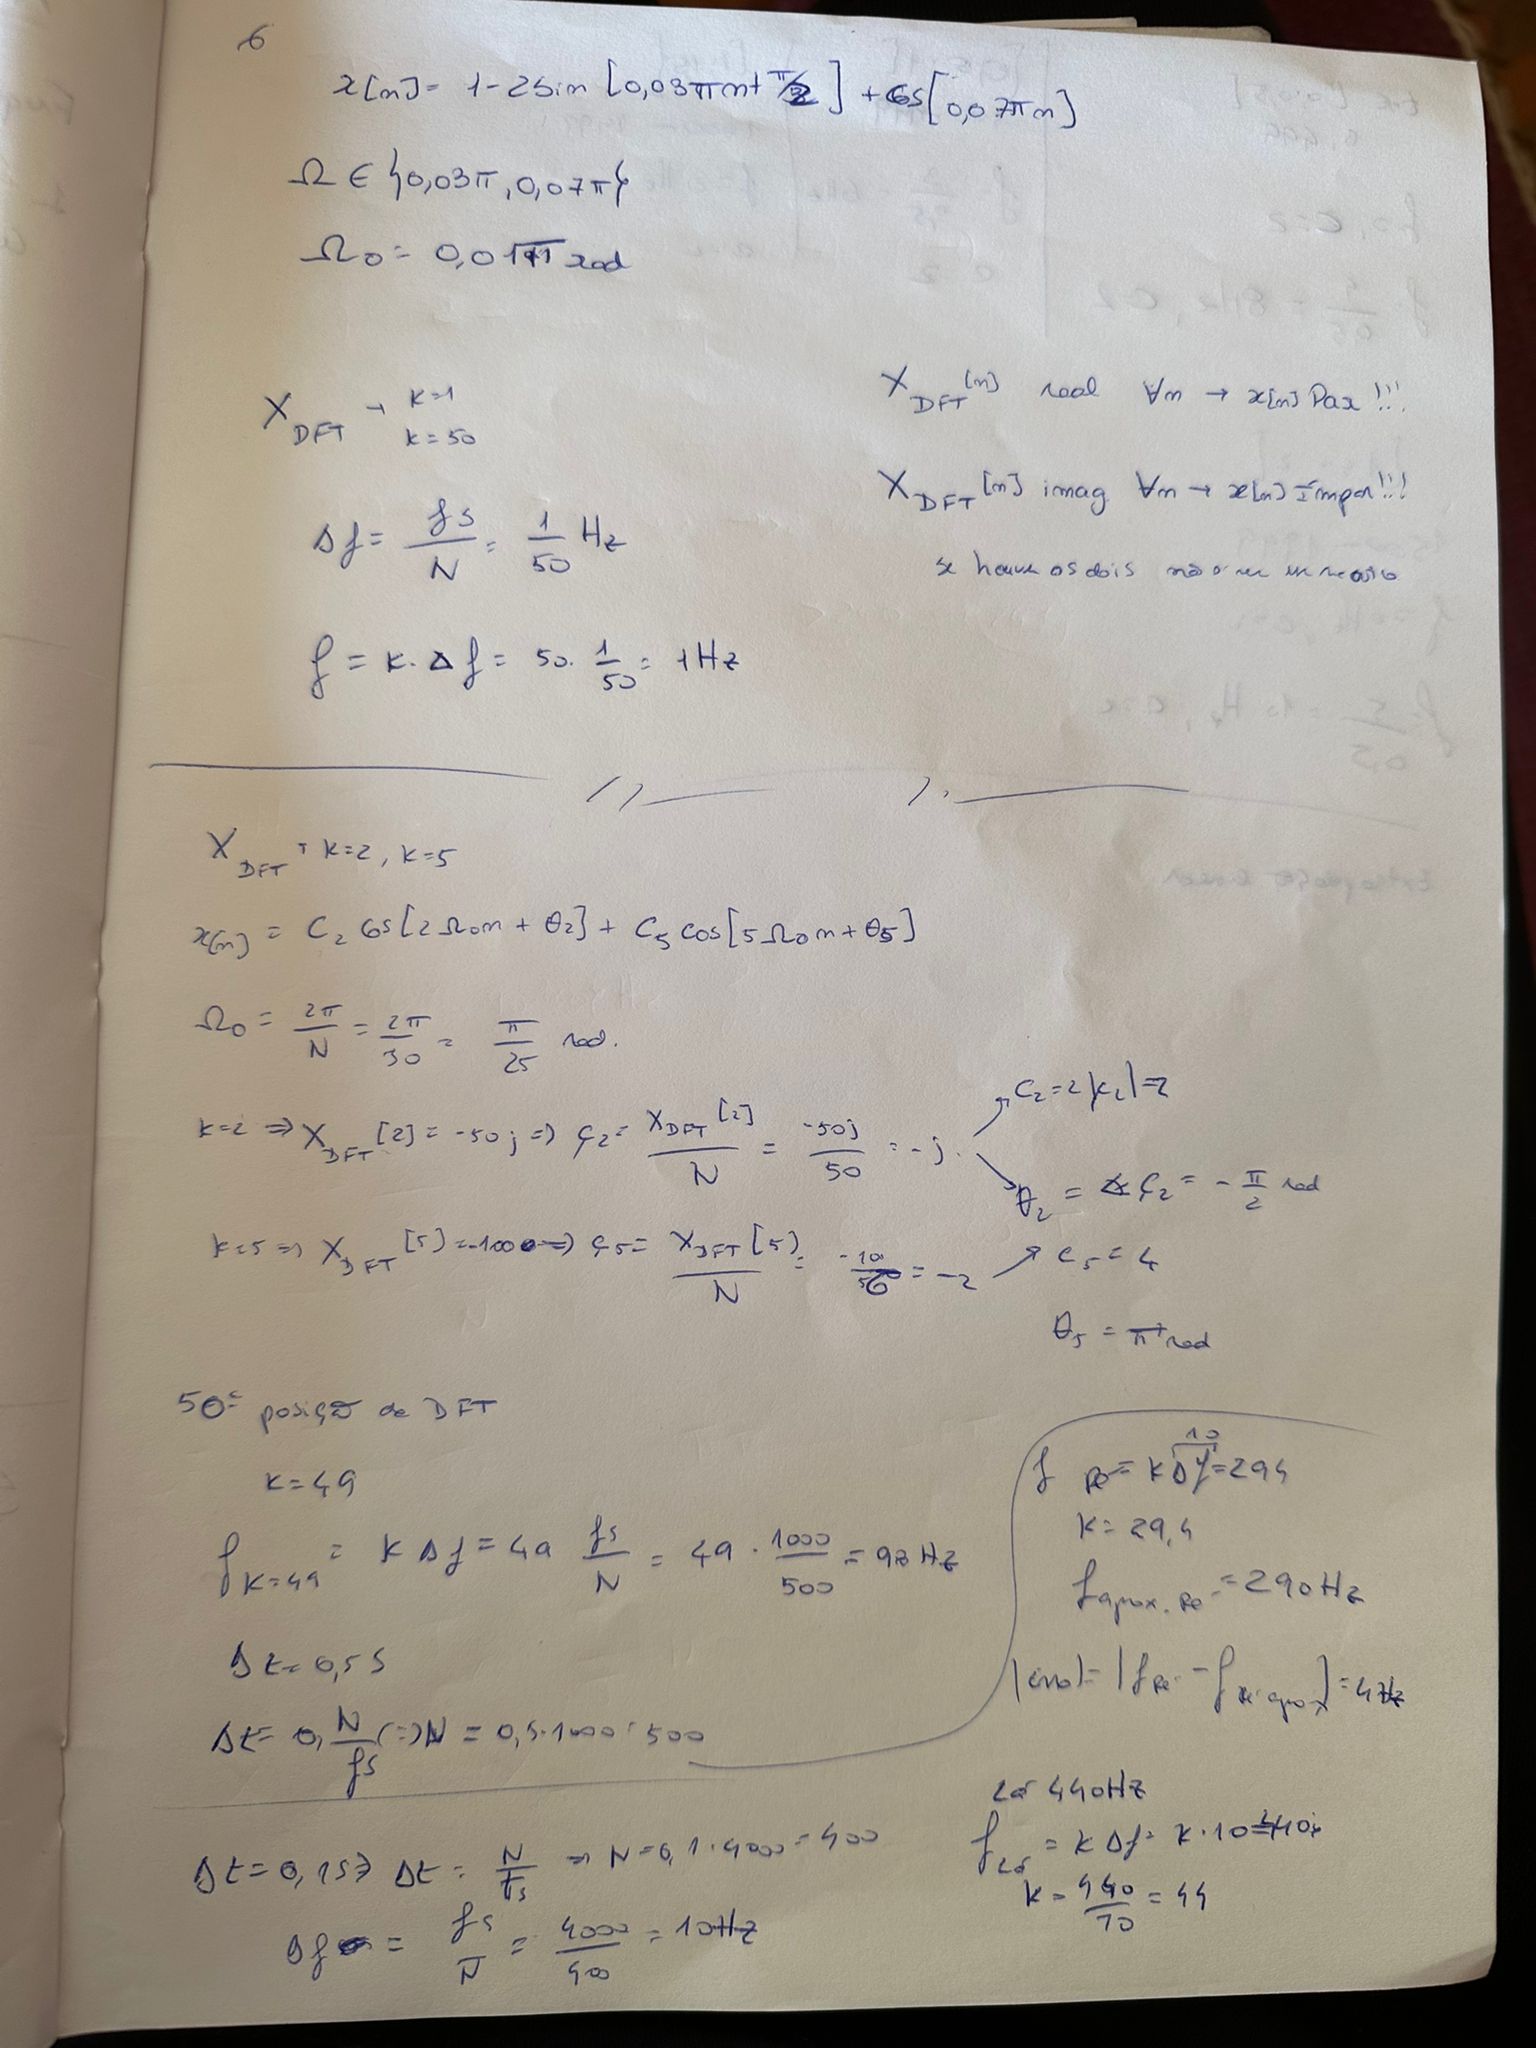 6
x[n] = 1 - 2 sin [0,03πn + π/2] + cos [0,07πn]
Ω ∈ {0,03π, 0,07π}
Ω0 = 0,01π rad
X DFT → k=1
k=50
Δf = fs/N = 1/50 Hz
f = k. Δf = 50. 1/50 = 1Hz
X DFT [n] real ∀n → x[n] Par !!!
X DFT [n] imag ∀n → x[n] Ímpar!!!
se houver os dois não
X DFT → k=2, k=5
x[n] = C2 cos[2Ω0n + θ2] + C5 cos[5Ω0n + θ5]
Ω0 = 2π/N = 2π/50 = π/25 rad.
k=2 ⇒ X DFT [2] = -50j ⇒ c2 = X DFT [2]/N = -50j/50 = -j.
C2 = 2|c2| = 2
θ2 = ∡ c2 = - π/2 rad
k=5 ⇒ X DFT [5] = -100 ⇒ c5 = X DFT [5]/N = -100/50 = -2
C5 = 4
θ5 = π rad
50ª posição de DFT
k=49
f k=49 = k Δf = 49 fs/N = 49 . 1000/500 = 98 Hz
Δt = 0,5 s
Δt = 0, N/fs (=) N = 0,5.1000 = 500
f Ré = k Δf = 294
10
k = 29,4
f aprox. Ré = 290Hz
|erro| = |f Ré - f Ré aprox| = 4Hz
Δt = 0,1s ⇒ Δt = N/fs ⇒ N = 0,1.4000 = 400
Δf = fs/N = 4000/400 = 10Hz
Lá 440Hz
f Lá = k Δf = k.10 = 440
k = 440/10 = 44